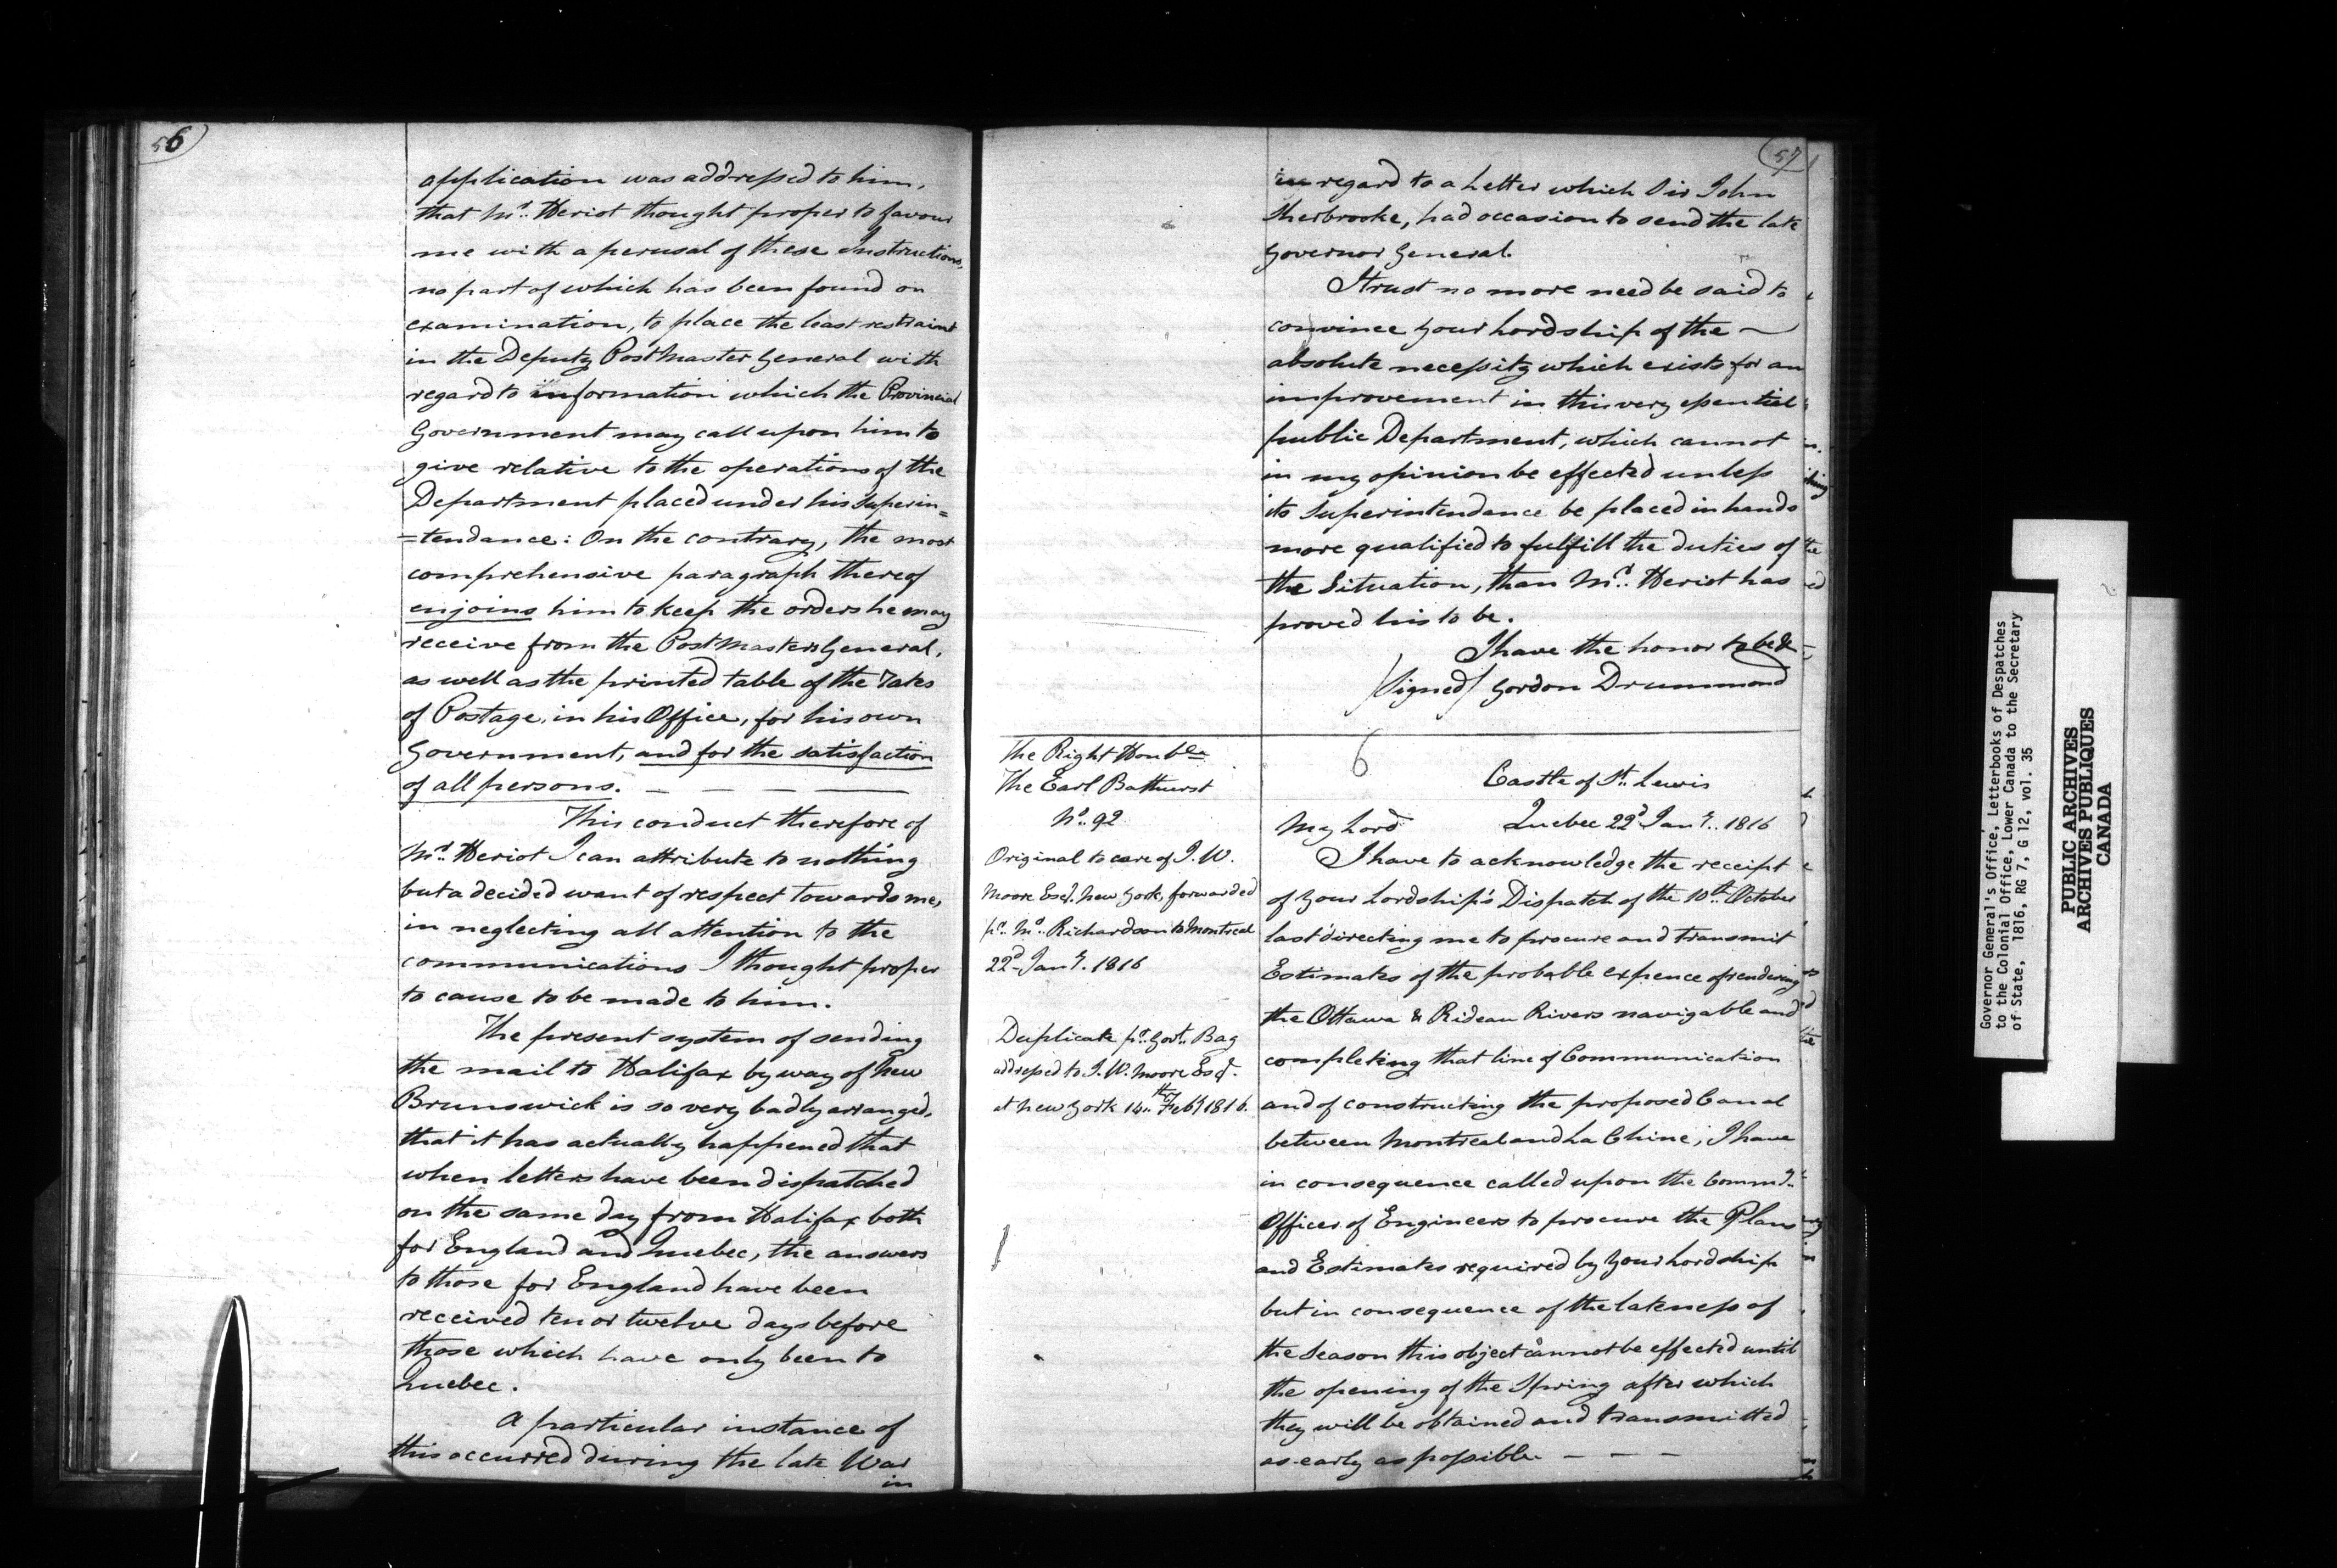 56
application was addressed to him,
that Mr. Heriot thought proper to favour
me with a perusal of these Instructions,
no part of which has been found on
examination, to place the least restraint
in the Deputy Post Master General with
regard to information which the Provincial
Government may call upon him to
give relative to the operations of the
Department placed under his Superin=
=tendance: On the contrary, the most
comprehensive paragraph thereof
enjoins him to keep the orders he may
receive from the Post Masters General,
as well as the printed table of the rates
of Postage, in his Office, for his own
Government, and for the satisfaction
of all persons. — — — —
This conduct therefore of
Mr. Heriot I can attribute to nothing
but a decided want of respect towards me,
in neglecting all attention to the
communications I thought proper
to cause to be made to him.
The present system of sending
the mail to Halifax by way of New
Brunswick is so very badly arranged,
that it has actually happened that
when letters have been dispatched
on the same day from Halifax both
for England and Quebec, the answers
to those for England have been
received ten or twelve days before
those which have only been to
Quebec.
A particular instance of
this occurred during the late War
in
57
in regard to a Letter which Sir John
Sherbrooke, had occasion to send the late
Governor General.
I trust no more need be said to
convince your Lordship of the —
absolute necessity which exists for an
improvement in this very essential
public Department, which cannot
in my opinion be effected unless
its Superintendance be placed in hands
more qualified to fulfill the duties of
the Situation, than Mr. Heriot has
proved his to be.
I have the honor to be &
/Signed/ Gordon Drummond
The Right Honble
The Earl Bathurst
No. 92
Original to care of I. W.
Moore Esqr. New York, forwarded
pr. Mr. Richardson to Montreal
22d Jany. 1816
Duplicate pr. Govt. Bag
addressed to I. W. Moore Esqr.
at New York 14th Feby 1816.
6
Castle of St. Lewis
My Lord Quebec 22d Jany. 1816
I have to acknowledge the receipt
of Your Lordship's Dispatch of the 10th October
last directing me to procure and transmit
Estimates of the probable expence of rendering
the Ottawa & Rideau Rivers navigable and
completing that line of Communication
and of constructing the proposed Canal
between Montreal and La Chine; I have
in consequence called upon the Commg.
Officer of Engineers to procure the Plans
and Estimates required by Your Lordship
but in consequence of the lateness of
the Season this object cannot be effected until
the opening of the Spring after which
they will be obtained and transmitted
as early as possible. — — —
Governor General's Office, Letterbooks of Despatches
to the Colonial Office, Lower Canada to the Secretary
of State, 1816, RG 7, G 12, vol. 35
PUBLIC ARCHIVES
ARCHIVES PUBLIQUES
CANADA